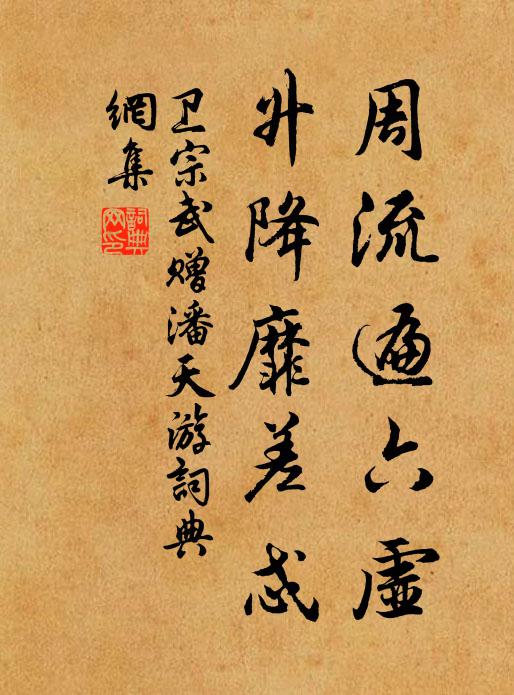 周流遍六虛
升降靡差忒
卫宗武赠潘天游詞典
網集
詞典
网印